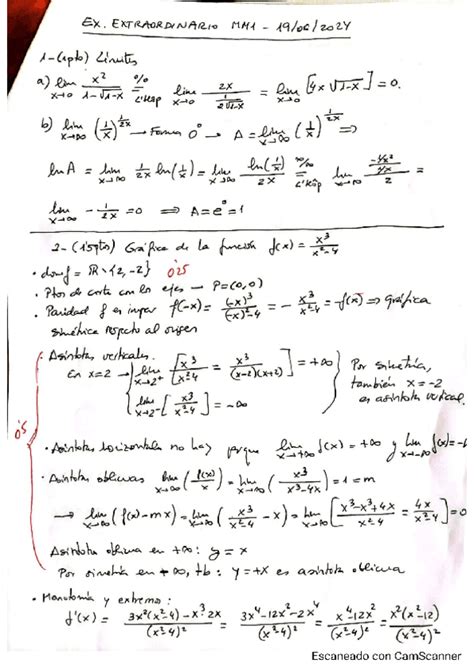 EX. EXTRAORDINARIO MM1 - 19/06/2024
1-(1pto) Límites
a) lim x→0 x²/(1-√(1-x)) = 0/0 L'Hôp lim x→0 2x/(1/(2√(1-x))) = lim x→0 [4x√(1-x)] = 0.
b) lim x→∞ (1/x)^(1/2x) → Forma 0⁰ → A = lim x→∞ (1/x)^(1/2x) ⇒
ln A = lim x→∞ 1/2x ln(1/x) = lim x→∞ ln(1/x)/2x = ∞/∞ L'Hôp lim x→∞ (-1/x²/1/x)/2 =
lim x→∞ -1/2x = 0 ⇒ A = e⁰ = 1
2-(1'5pto) Gráfica de la función f(x) = x³/(x²-4)
• dom f = ℝ \ {2, -2} 0'25
• Ptos de corte con los ejes → P=(0,0)
• Paridad f es impar f(-x) = (-x)³/((-x)²-4) = - x³/(x²-4) = -f(x) ⇒ Gráfica
simétrica respecto al origen
• Asíntotas verticales.
En x=2 → lim x→2⁺ [x³/(x²-4) = x³/((x-2)(x+2))] = +∞
lim x→2⁻ [x³/(x²-4)] = -∞
Por simetría,
también x = -2
es asíntota vertical.
0'5
• Asíntotas horizontales no hay porque lim x→+∞ f(x) = +∞ y lim x→-∞ f(x) = -
• Asíntotas oblicuas lim x→∞ (f(x)/x) = lim x→∞ (x³/(x³-4x)) = 1 = m
→ lim x→∞ (f(x) - mx) = lim x→∞ (x³/(x²-4) - x) = lim x→∞ [(x³-x³+4x)/(x²-4) = 4x/(x²-4)] = 0
Asíntota oblicua en +∞: y = x
Por simetría en -∞, tb: y = +x es asíntota oblicua
• Monotonía y extremos:
f'(x) = (3x²(x²-4) - x³·2x)/(x²-4)² = (3x⁴-12x²-2x⁴)/(x²-4)² = (x⁴-12x²)/(x²-4)² = x²(x²-12)/(x²-4)²
Escaneado con CamScanner